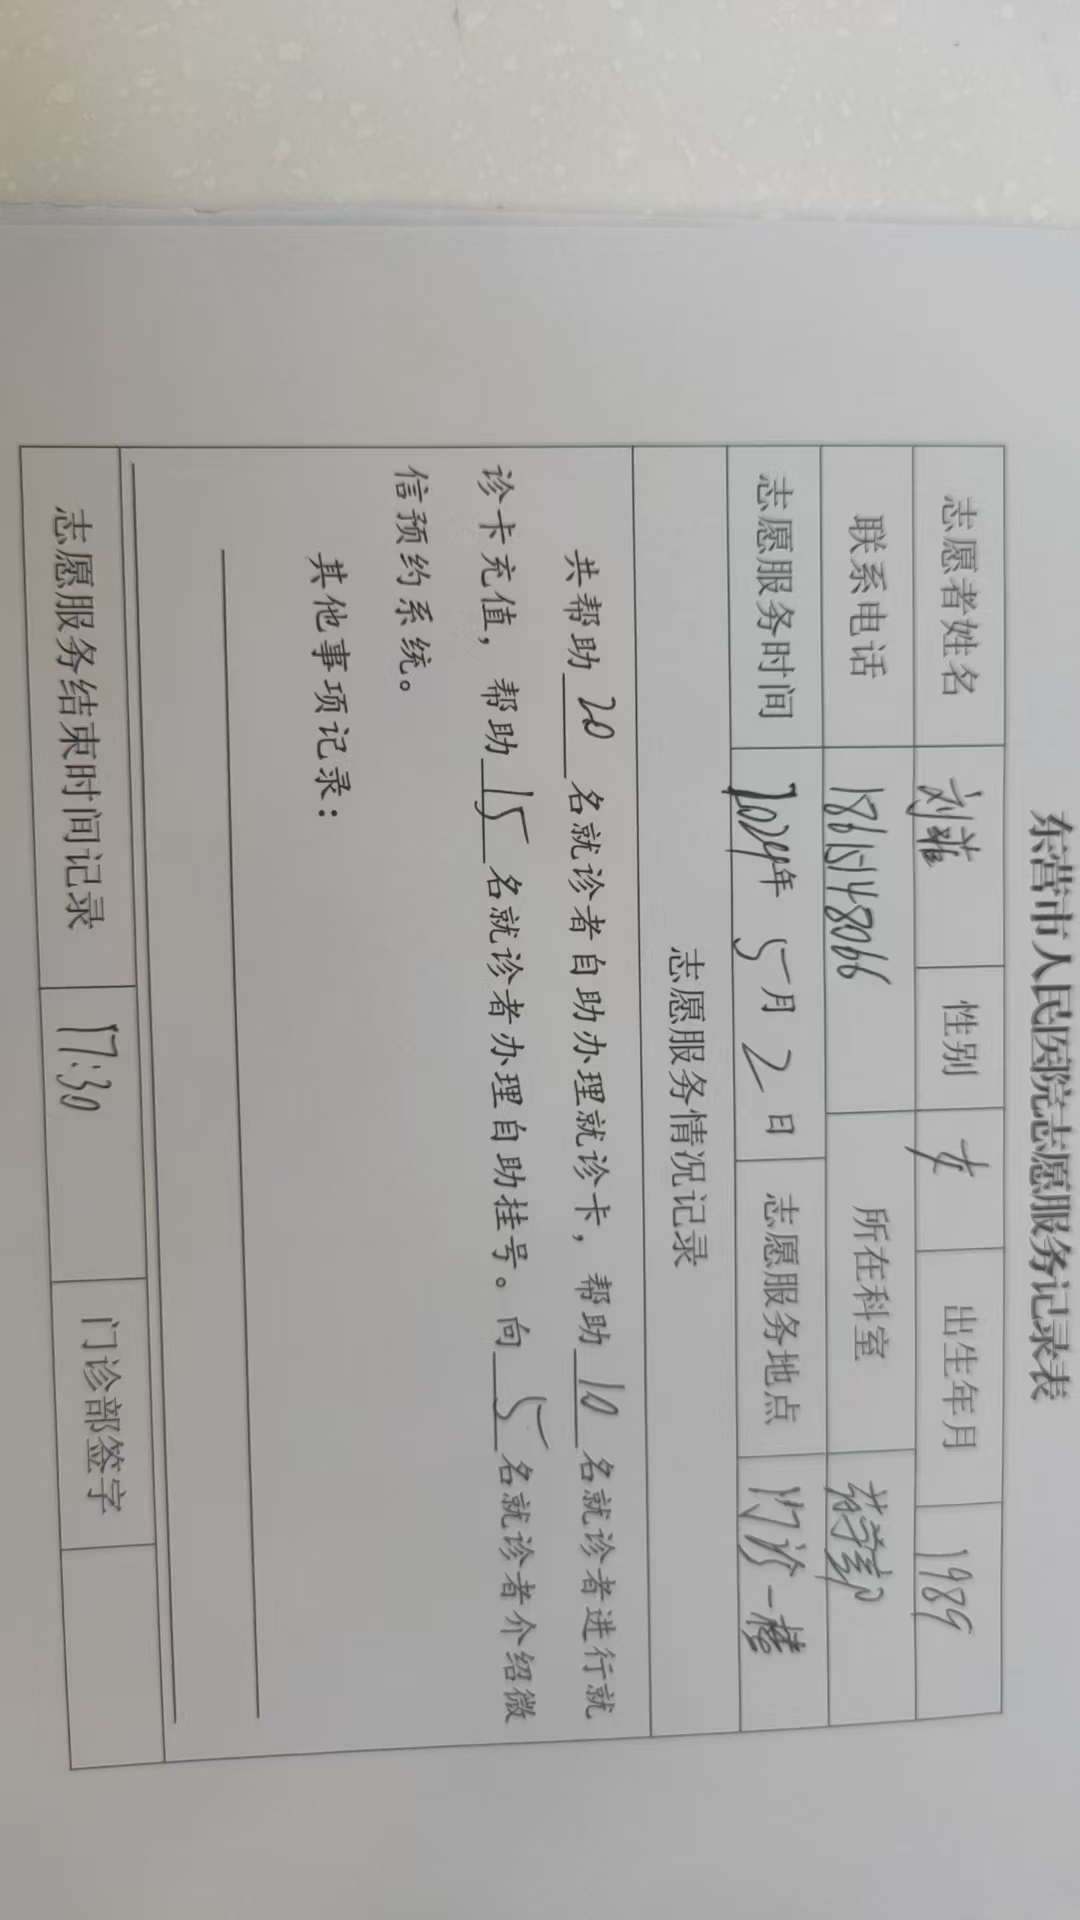 东营市人民医院志愿服务记录表
志愿者姓名 刘 性别 女 出生年月 1989
联系电话 18615148066 所在科室 药学部
志愿服务时间 2024年 5月 2日 志愿服务地点 门诊一楼
志愿服务情况记录
共帮助 20 名就诊者自助办理就诊卡，帮助 10 名就诊者进行就
诊卡充值，帮助 15 名就诊者办理自助挂号。向 5 名就诊者介绍微
信预约系统。
其他事项记录：
志愿服务结束时间记录 17:30 门诊部签字